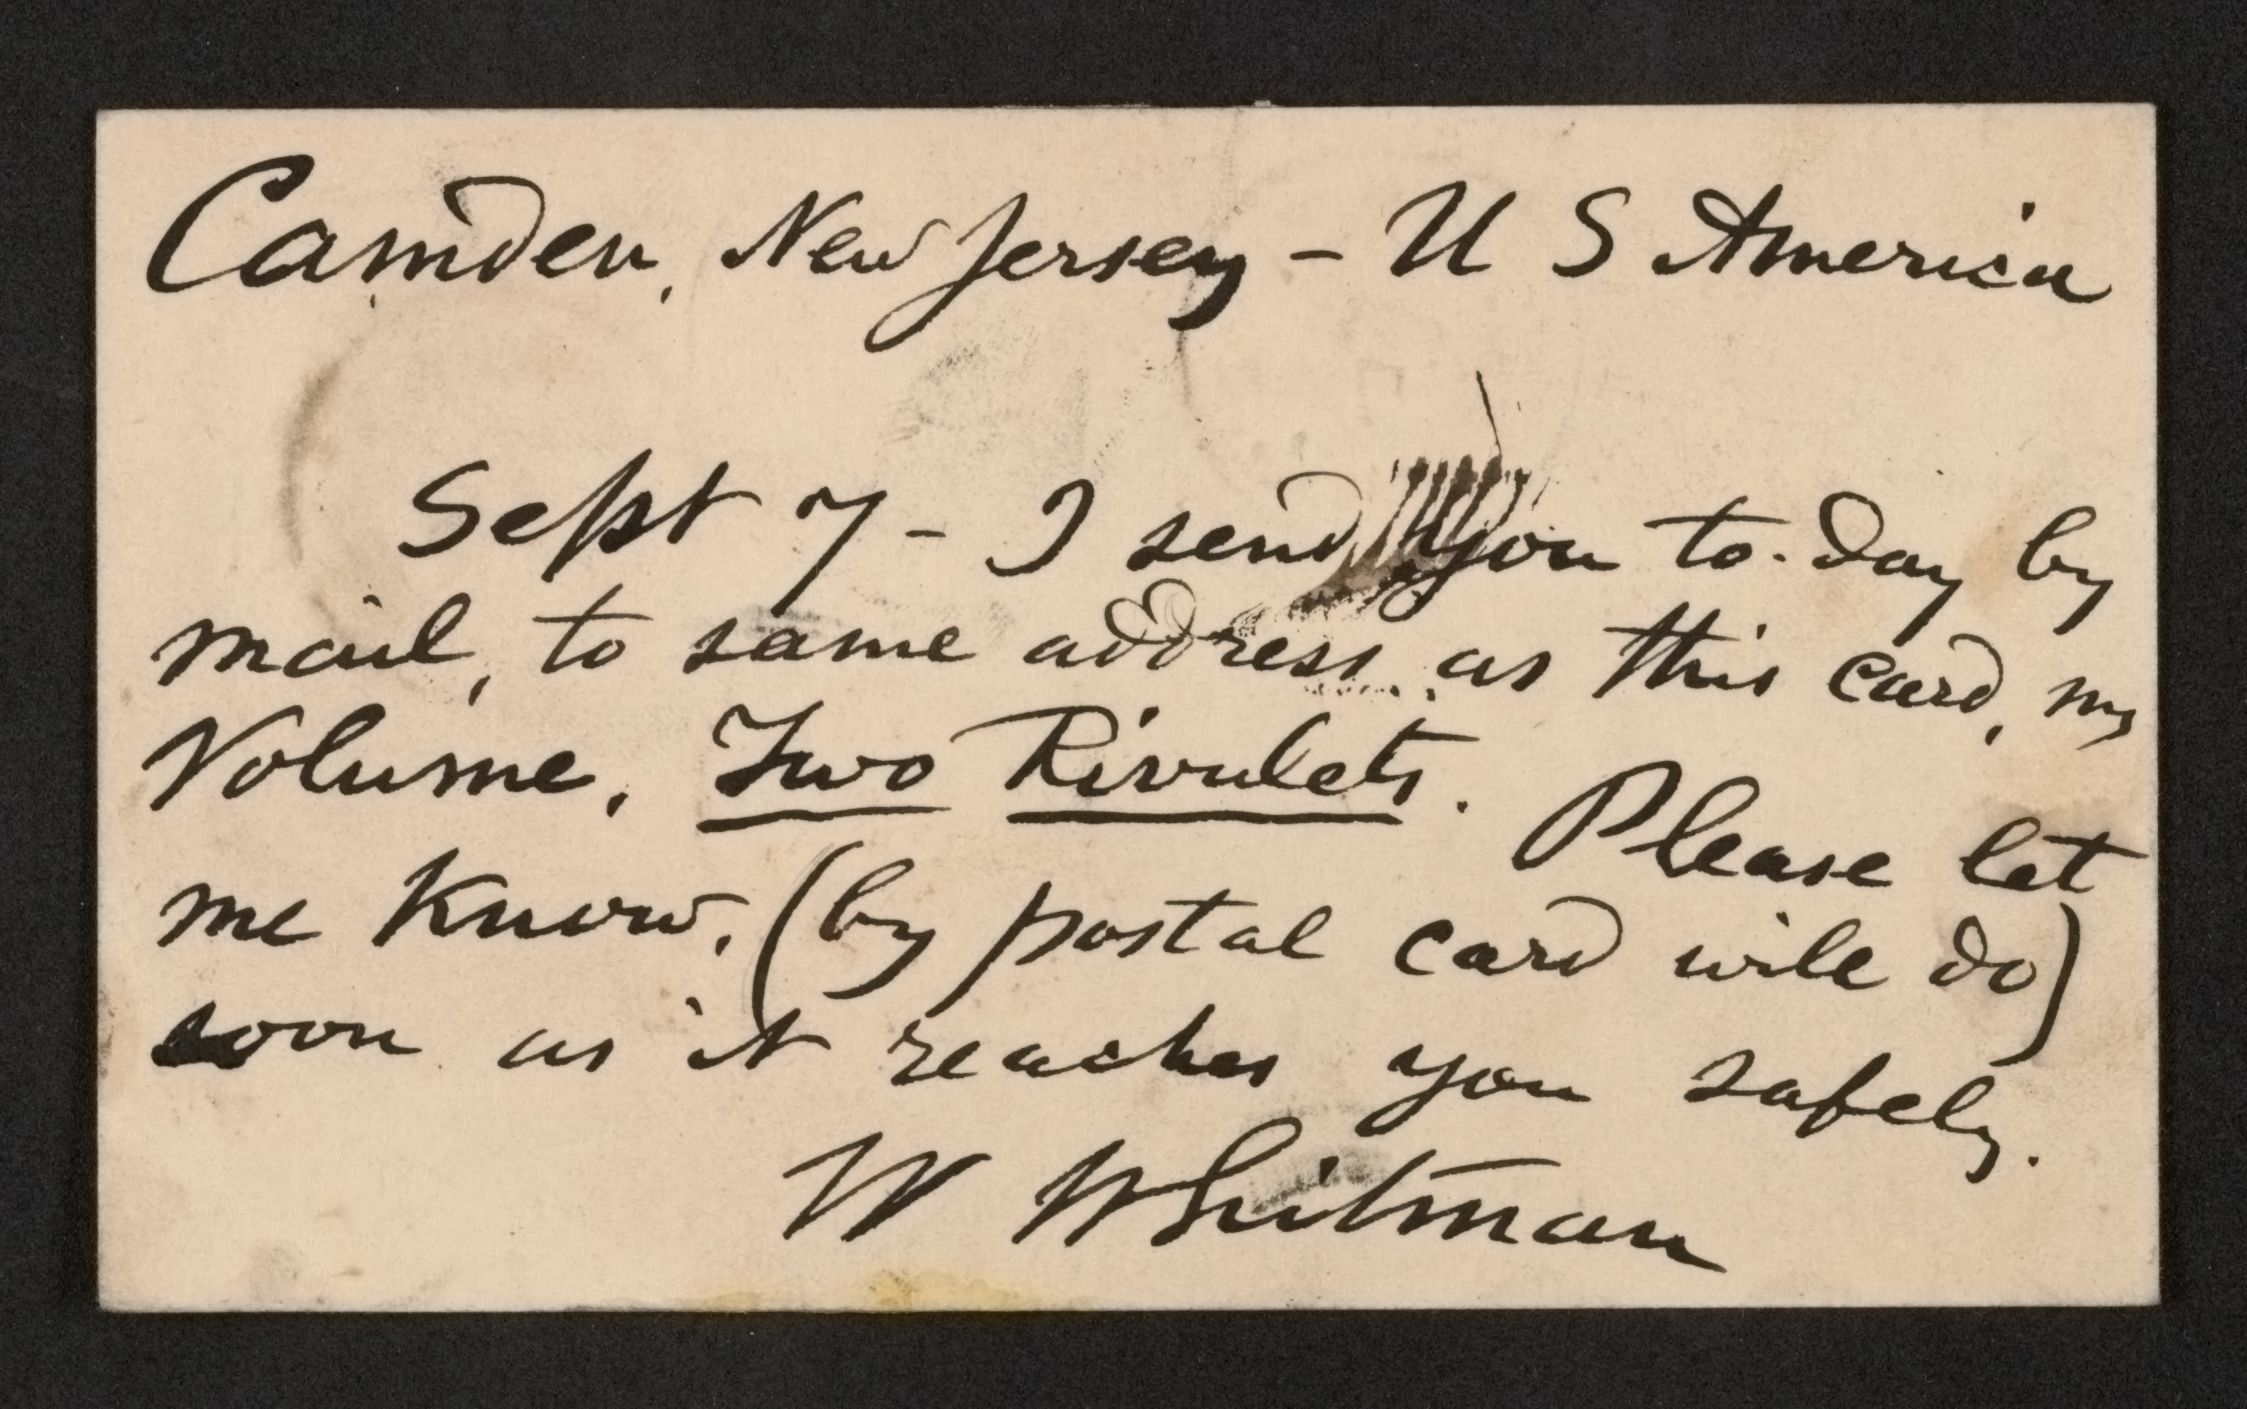 Camden, New Jersey – U S America
Sept 7 – I send you to-day by
mail, to same address as this card, my
Volume, Two Rivulets. Please let
me know, (by postal card will do)
soon as it reaches you safely.
W Whitman